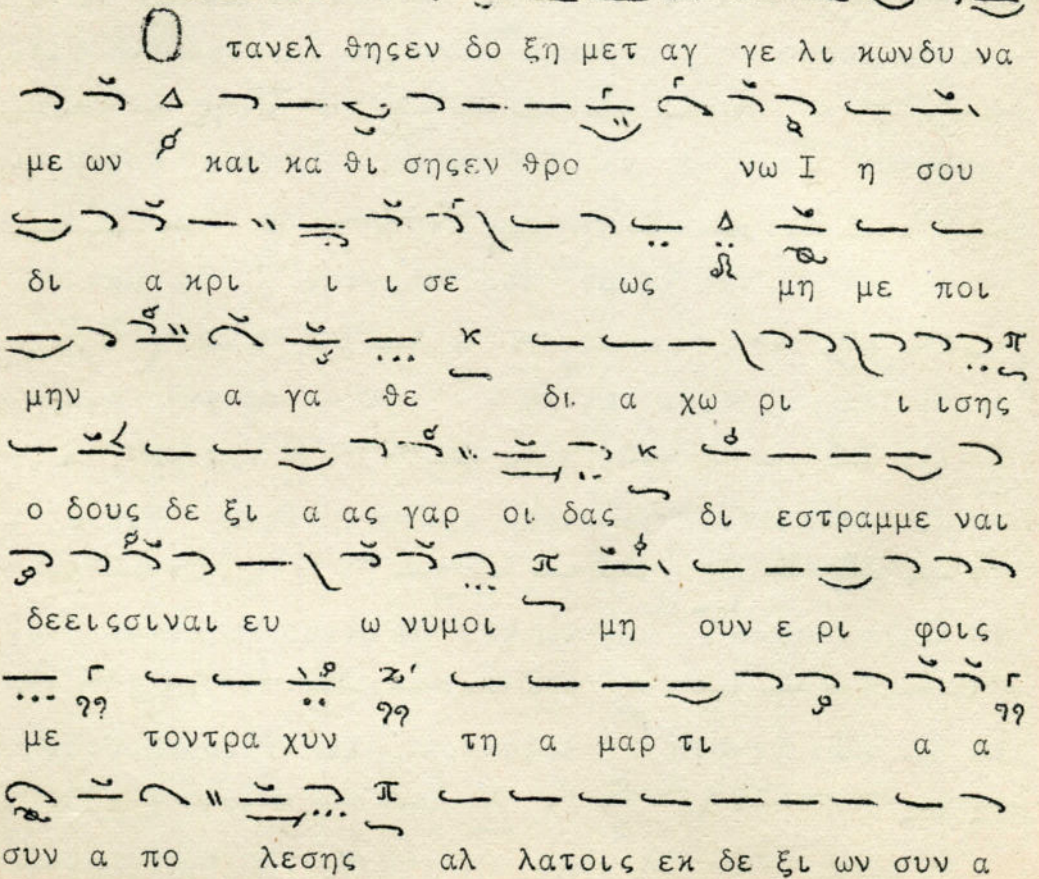 Ο τανελ θησεν δο ξη μετ αγ γε λι κωνδυ να
με ων και κα θι σησεν θρο νω Ι η σου
δι α κρι ι ι σε ως μη με ποι
μην α γα θε δι α χω ρι ι ισης
ο δους δε ξι α ας γαρ οι δας δι εστραμμε ναι
δεειςσιναι ευ ω νυμοι μη ουν ε ρι φοις
με τοντρα χυν τη α μαρ τι α α
συν α πο λεσης αλ λατοις εκ δε ξι ων συν α